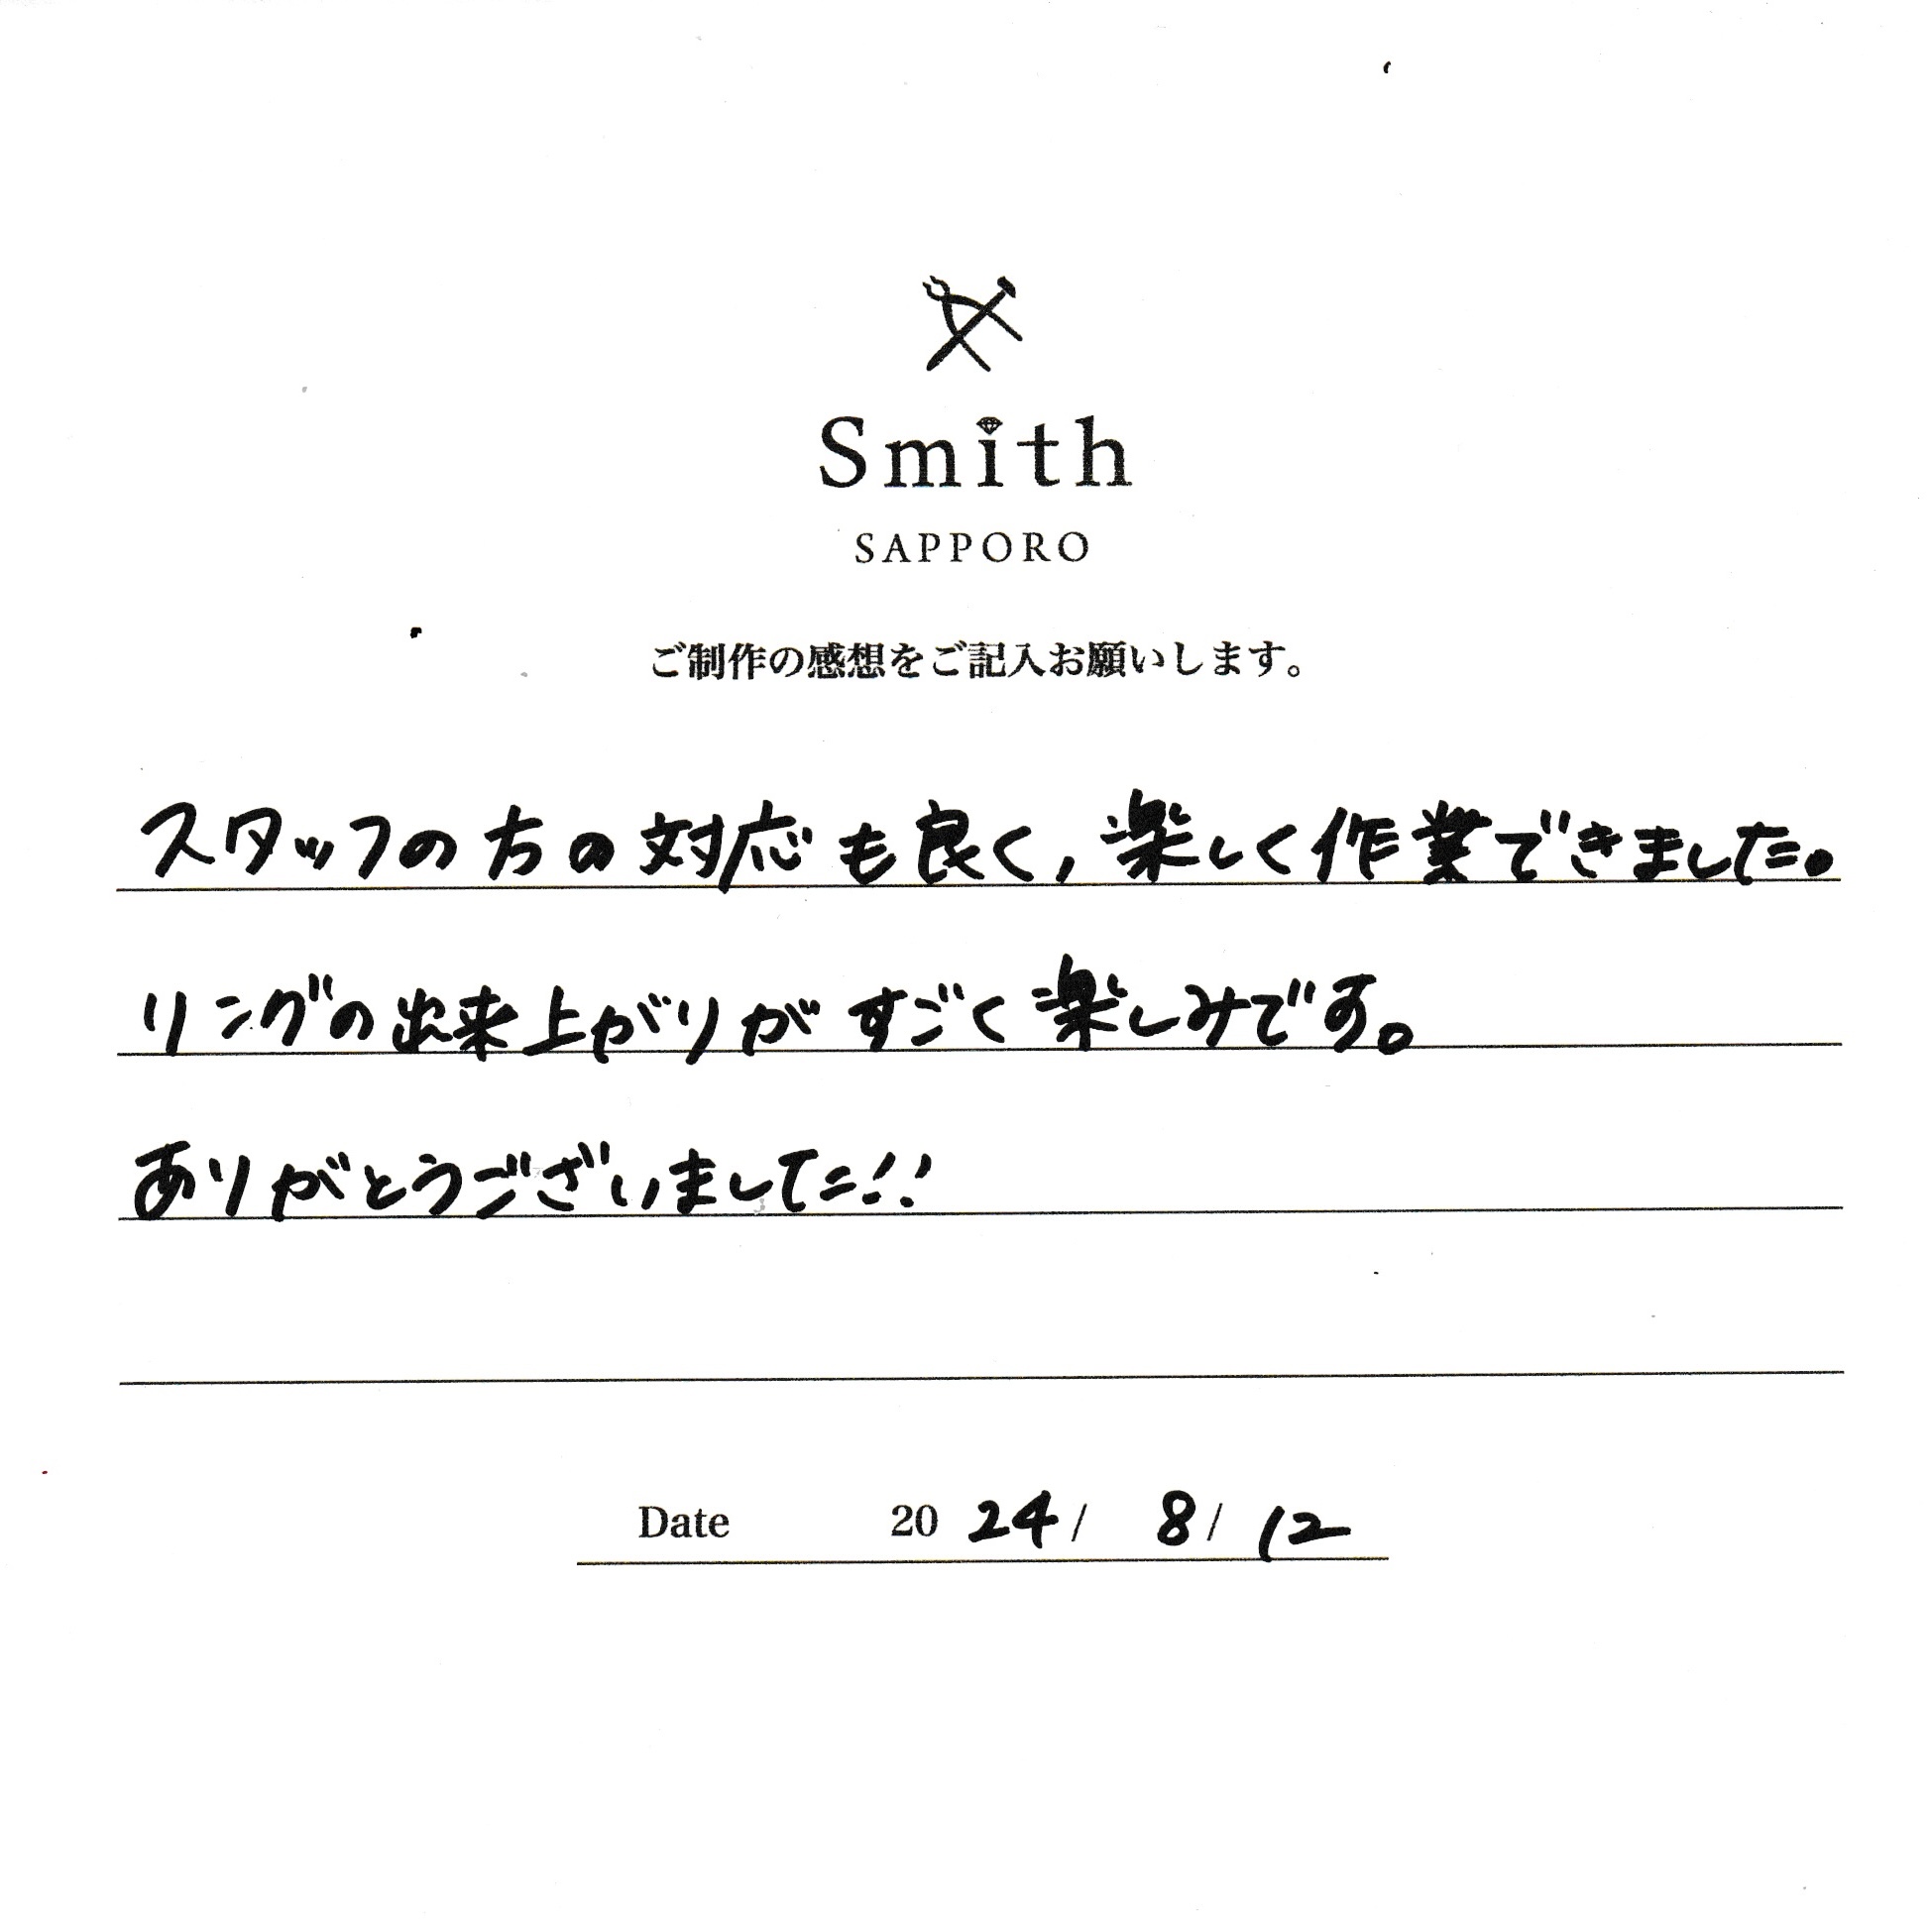 Smith
SAPPORO
ご制作の感想をご記入お願いします。
スタッフの方の対応も良く,楽しく作業できました。
リングの出来上がりがすごく楽しみです。
ありがとうございました!!
Date 20 24/ 8/ 12